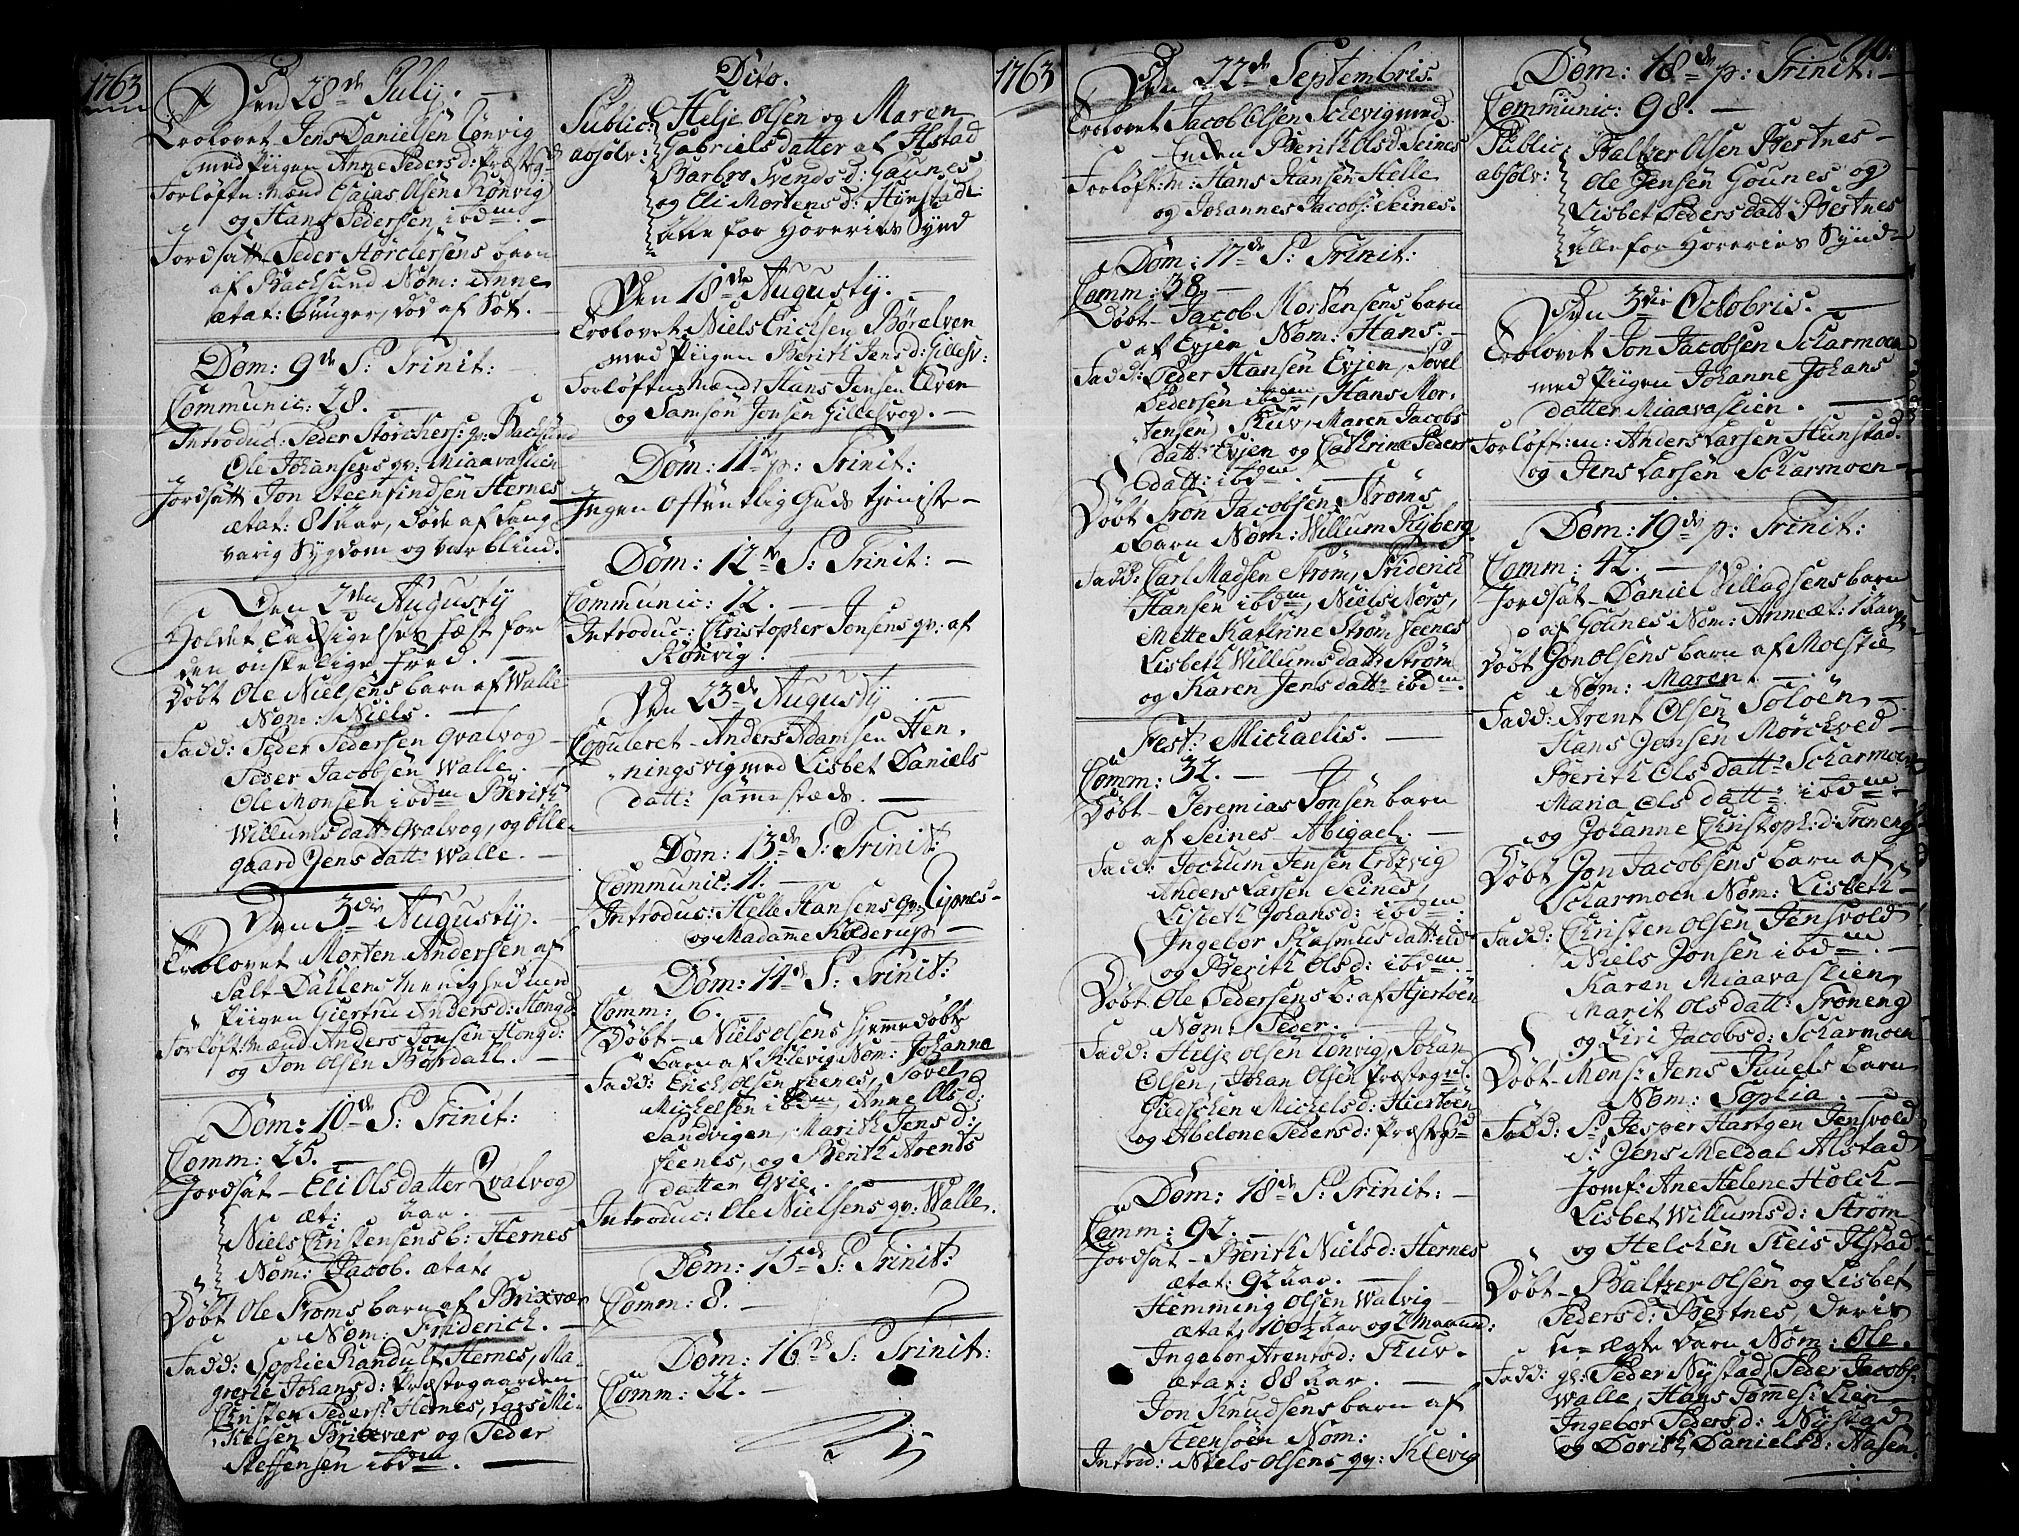 1763
Den 28de July. —
Trolovet Jens Danielsen Lønvig
med Piigen Anne Pedersd: Præstegd
Forløftn: Mænd Esaias Olsen Rønvig
og Hans Pedersen ibdm —
Jordsatt Peder Størchersens barn
af Bachsund Nom: Anne
ætat: 6 Uuger, død af Sot. —
Dom: 9de P: Trinit:
Communic: 28. —
Introduc: Peder Størchers: qv: Bachsund
Ole Johansens qv: Miaavaslien
Jordsatt Jon Steenfindsen Hernes
ætat: 81 aar, døde af lang
varig Sygdom og var blind.
Den 2den Augusty
Holdet Tachsigelses fæst for
den ønskelige fred. —
Døbt Ole Nielsens barn af Walle
Nom: Niels. —
Fadd: Peder Pedersen Qvalvog
Peder Jacobsen Walle. —
Ole Monsen ibdm Berith
Willumsdatt: Qvalvog, og Olle-
gaard Jensdatt: Walle. —
Den 3die Augusty. —
Trolovet Morten Andersen af
Salt-Dallens Menighed med
Piigen Giertru Andersd: Hongd:
Forløft: Mænd Anders Jonsen Hongd:
og Jon Olsen Børdall. —
Dom: 10de P: Trinit:
Comm: 25. —
Jordsat — Eli Olsdatter Qvalvog
æt: aar. —
Niels Christensens b: Hernes
Nom: Jacob. ætat:
Døbt Ole Froms barn af Brixvær
Nom: Friderich. —
Fadd: Sophie Randulf Hernes, Ma-
grethe Johansd: Præstegaarden
Christen Peders: Hernes, Lars Mi-
kelsen Brixvær og Peder
Steffensen ibdm. —
Dito.
Public: Helje Olsen og Maren
absolv: Gabrielsdatter af Alstad
Barbro Svendsd: Gaunes
og Eli Mortensd: Hunstad:
Alle for Horeries Synd
Den 18de Augusty. —
Trolovet Niels Erichsen Børelven
med Piigen Berith Jensd: Gillesv:
Forløftn: Mænd: Hans Jensen Elven
og Samson Jonsen Gillesvog. —
Dom: 11te p: Trinit:
Ingen Offentlig Guds tjeniste —
Dom: 12te P: Trinit: —
Communic: 12. —
Introduc: Christopher Jonsens qv: af
Rønvig.
Den 23de Augusty. —
Copuleret — Anders Adamsen Hen-
ningsvig med Lisbet Daniels
datt: sammestæds. —
Dom: 13de P: Trinit:
Communic: 11. —
Introduc: Helle Hansens qv:
og Madamme Kolderup —
Dom: 14de P: Trinit:
Comm: 6. —
Døbt — Niels Olsens Hjemmedøbte
barn af Klevig Nom: Johanna
Fadd: Erich Olsen Seenes, Povel
Michelsen ibdm, Anne Olsd:
Sandvigen, Marith Jensd:
Seenes, og Berith Arents
datter Qvie. —
Introduc: Ole Nielsens qv: Walle.
Dom: 15de P: Trinit:
Comm: 8. —
Dom: 16de P: Trinit:
Comm: 22. —
1763
Den 22de Septembris.
Trolovet Jacob Olsen Schevig med
Enken Berith Olsd Seines
Forløft: m: Hans Hansen Helle
og Johannes Jacobs: Seines.
Dom: 17de P: Trinit:
Comm: 38. —
Døbt — Jacob Mortensens barn
af Evjen Nom: Hans. —
Fadd: Peder Hansen Evjen, Povel
Pedersen ibdm, Hans Mor-
tensen Skuv, Maren Jacobs
datt: Evjen og Cathrine Peders
datt: ibdm. —
Døbt Iron Jacobsen Strøms
barn Nom: Willum Ryberg.
Fadd: Carl Madsen Strøm, Friderich
Hansen ibdm, Niels Nors,
Mette Katrine Strøm Seenes
Lisbeth Willumsdatt: Strøm
og Karen Jensdatt: ibdm.
Fest: Michaelis. —
Comm: 32. —
Døbt — Jeremias Jonsen barn
af Seines Abigael. —
Fadd: Jochum Jensen Erchvig
Anders Larsen Seines,
Lisbeth Johansd: ibdm:
Ingebor Rasmusdatt: ibd
og Berith Olsd: ibdm.
Døbt Ole Pedersens b: af Hjertøen
Nom: Peder. —
Fadd: Helje Olsen Lønvig, Johan
Olsen, Johan Olsen Præstegd
Gidschen Michelsd: Hiertøen
og Abelone Pedersd: Præstegd
Dom: 18de P: Trinit: —
Comm: 92. —
Jordsat — Berith Nielsd: Hernes
ætat: 92 aar. —
Hemming Olsen Walvig —
ætat: 100½ aar og 2 Maaned:
Ingebor Arentsd: Skuv. —
ætat: 88 aar. —
Jon Knudsens barn af
Steensøen Nom:
Introd: Niels Olsens qv: Klevig
110.
Dom: 18de p: Trinit: —
Communic: 98. —
Public: Baltzer Olsen Bestnes —
absolv: Ole Jensen Gounes og
Lisbet Pedersdatt Bestnes
Alle for Horeries Synd —
Den 3die Octobris. —
Trolovet Jon Jacobsen Scharmoen
med Piigen Johanne Johans
datter Miaavaslien. —
Forløft: m: Anders Larsen Hunstad.
og Jens Larsen Scharmoen —
Dom: 19de p: Trinit:
Comm: 42. —
Jordsat — Daniel Villadsens barn
af Gounes Nom: Anne æt: 1 aar
Døbt Jon Olsens barn af Moestie
Nom: Maren. —
Fadd: Arent Olsen Soløen —
Hans Jonsen Mørchved —
Berith Olsdatt: Scharmoen
Maria Olsdatt: ibdm —
og Johanne Christoph: d: Troneng
Døbt Jon Jacobsens barn af
Scharmoen Nom: Lisbeth —
Fadd: Christen Olsen Jensvold
Niels Jonsen ibdm —
Karen Miaavaslien,
Marit Olsdatt: Troneng
og Siri Jacobsd: Scharmoen
Døbt — Mons: Jens Juuels barn
Nom: Sophia. —
Fadd: Sr Jesper Hartgen Jensvold
Sr Jens Meldal Alstad
Jomf: Ane Helene Holck —
Lisbet Willumsd: Strøm
og Helchen Steis Alstad
Døbt — Baltzer Olsen og Lisbet
Pedersd: Bestnes, deris
u-ægte barn Nom: Ole. —
Fadd: qv: Peder Nystad, Peder Jacobs:
Walle, Hans Tomes: Lien
Ingebor Pedersd: Nystad
og Dorith Danielsd: Aasen.